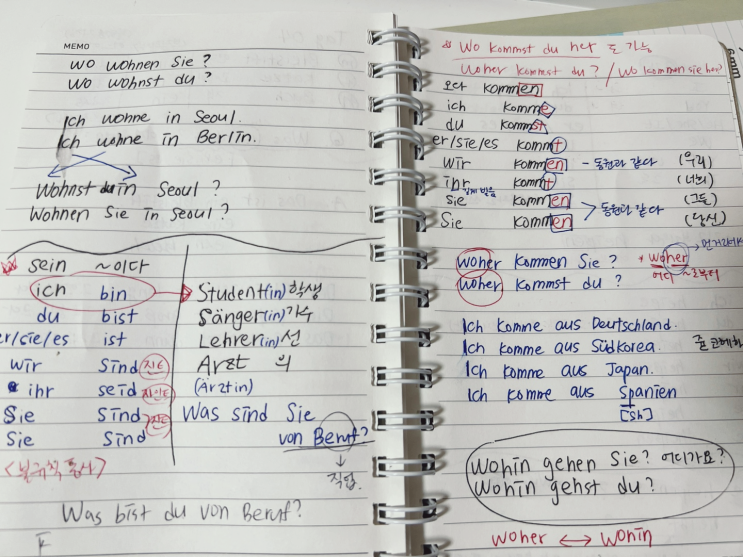 MEMO
wo wohnen Sie ?
wo wohnst du ?
Ich wohne in Seoul.
Ich wohne in Berlin.
Wohnst du in Seoul ?
Wohnen Sie in Seoul ?
sein ~이다
ich bin
du bist
er/sie/es ist
wir sind
ihr seid
Sie sind
Sie sind
<불규칙 동사>
Student(in) 학생
Sänger(in) 가수
Lehrer(in) 선
Arzt 의
(Ärztin)
Was sind Sie
von Beruf?
직업
Was bist du von Beruf?
※ Wo kommst du her 도 가능
Woher kommst du? / Wo kommen sie her?
오다 kommen
ich komme
du kommst
er/sie/es kommt
wir kommen - 동원과 같다 (우리)
ihr kommt (너희)
sie kommen (그들)
> 동원과 같다
Sie kommen (당신)
woher kommen Sie ? * woher
어디 ~로부터
woher kommst du ?
Ich komme aus Deutschland.
Ich komme aus Südkorea.
Ich komme aus Japan.
Ich komme aus Spanien
[sh]
Wohin gehen Sie? 어디가요?
Wohin gehst du ?
woher ↔ wohin